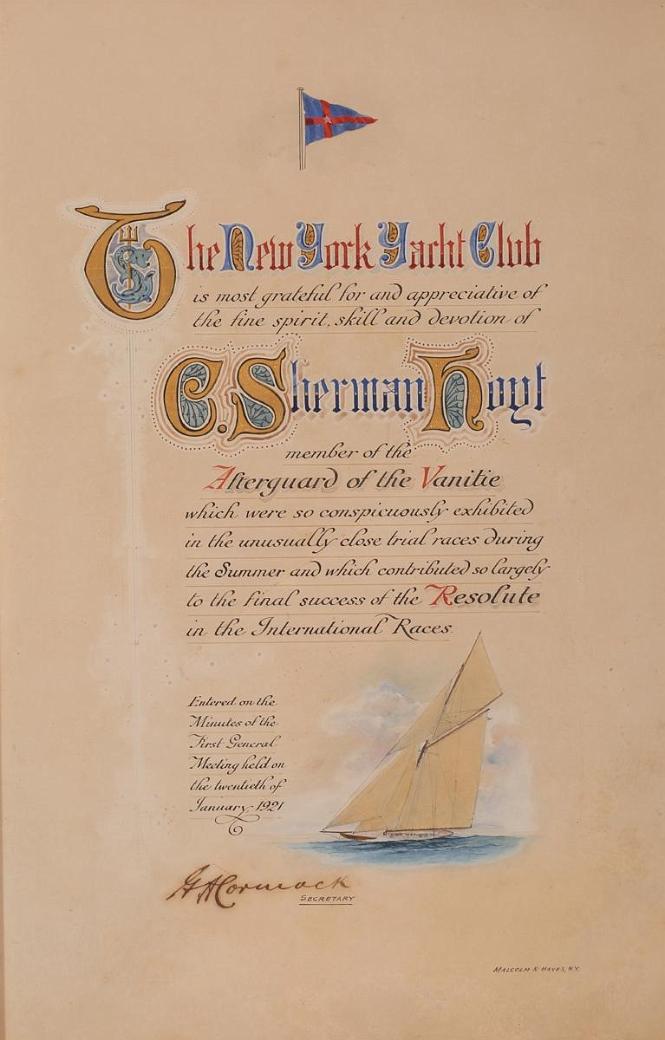 The New York Yacht Club
is most grateful for and appreciative of
the fine spirit, skill and devotion of
C. Sherman Hoyt
member of the
Afterguard of the Vanitie
which were so conspicuously exhibited
in the unusually close trial races during
the Summer and which contributed so largely
to the final success of the Resolute
in the International Races.
Entered on the
Minutes of the
First General
Meeting held on
the twentieth of
January, 1921
G A Cormack
SECRETARY
MALCOLM N. HAYES, N.Y.